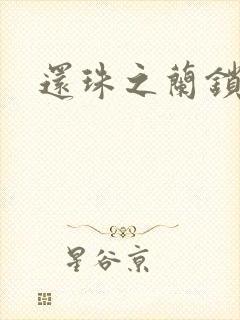 還珠之蘭鎖
星谷亰